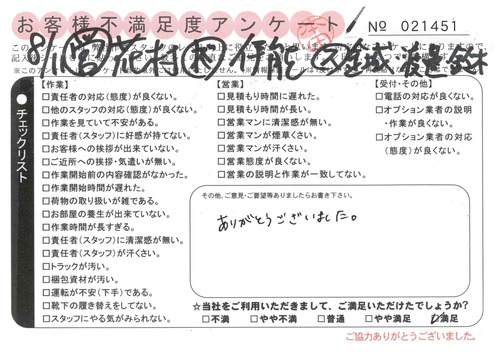 お客様不満足度アンケート
№ 021451
【作業】
□責任者の対応(態度)が良くない。
□他のスタッフの対応(態度)が良くない。
□作業を見ていて不安がある。
□責任者(スタッフ)に好感が持てない。
□お客様への挨拶が出来ていない。
□ご近所への挨拶・気遣いが無い。
□作業開始前の内容確認がなかった。
□作業開始時間が遅れた。
□荷物の取り扱いが雑である。
□お部屋の養生が出来ていない。
□作業時間が長すぎる。
□責任者(スタッフ)に清潔感が無い。
□責任者(スタッフ)が汗くさい。
□トラックが汚い。
□梱包資材が汚い。
□運転が不安(下手)である。
□靴下の履き替えをしてない。
□スタッフにやる気がみられない。
【営業】
□見積もり時間に遅れた。
□見積もり時間が長い。
□営業マンに清潔感が無い。
□営業マンが煙草くさい。
□営業マンが汗くさい。
□営業態度が良くない。
□営業の説明と作業が一致してない。
【受付・その他】
□電話の対応が良くない。
□オプション業者の説明
・作業が良くない。
□オプション業者の対応
(態度)が良くない。
チェックリスト
その他、ご意見・ご要望等ありましたらお書き下さい。
ありがとうございました。
☆当社をご利用いただきまして、ご満足いただけたでしょうか?
□不満 □やや不満 □普通 □やや満足 □満足
ご協力ありがとうございました。